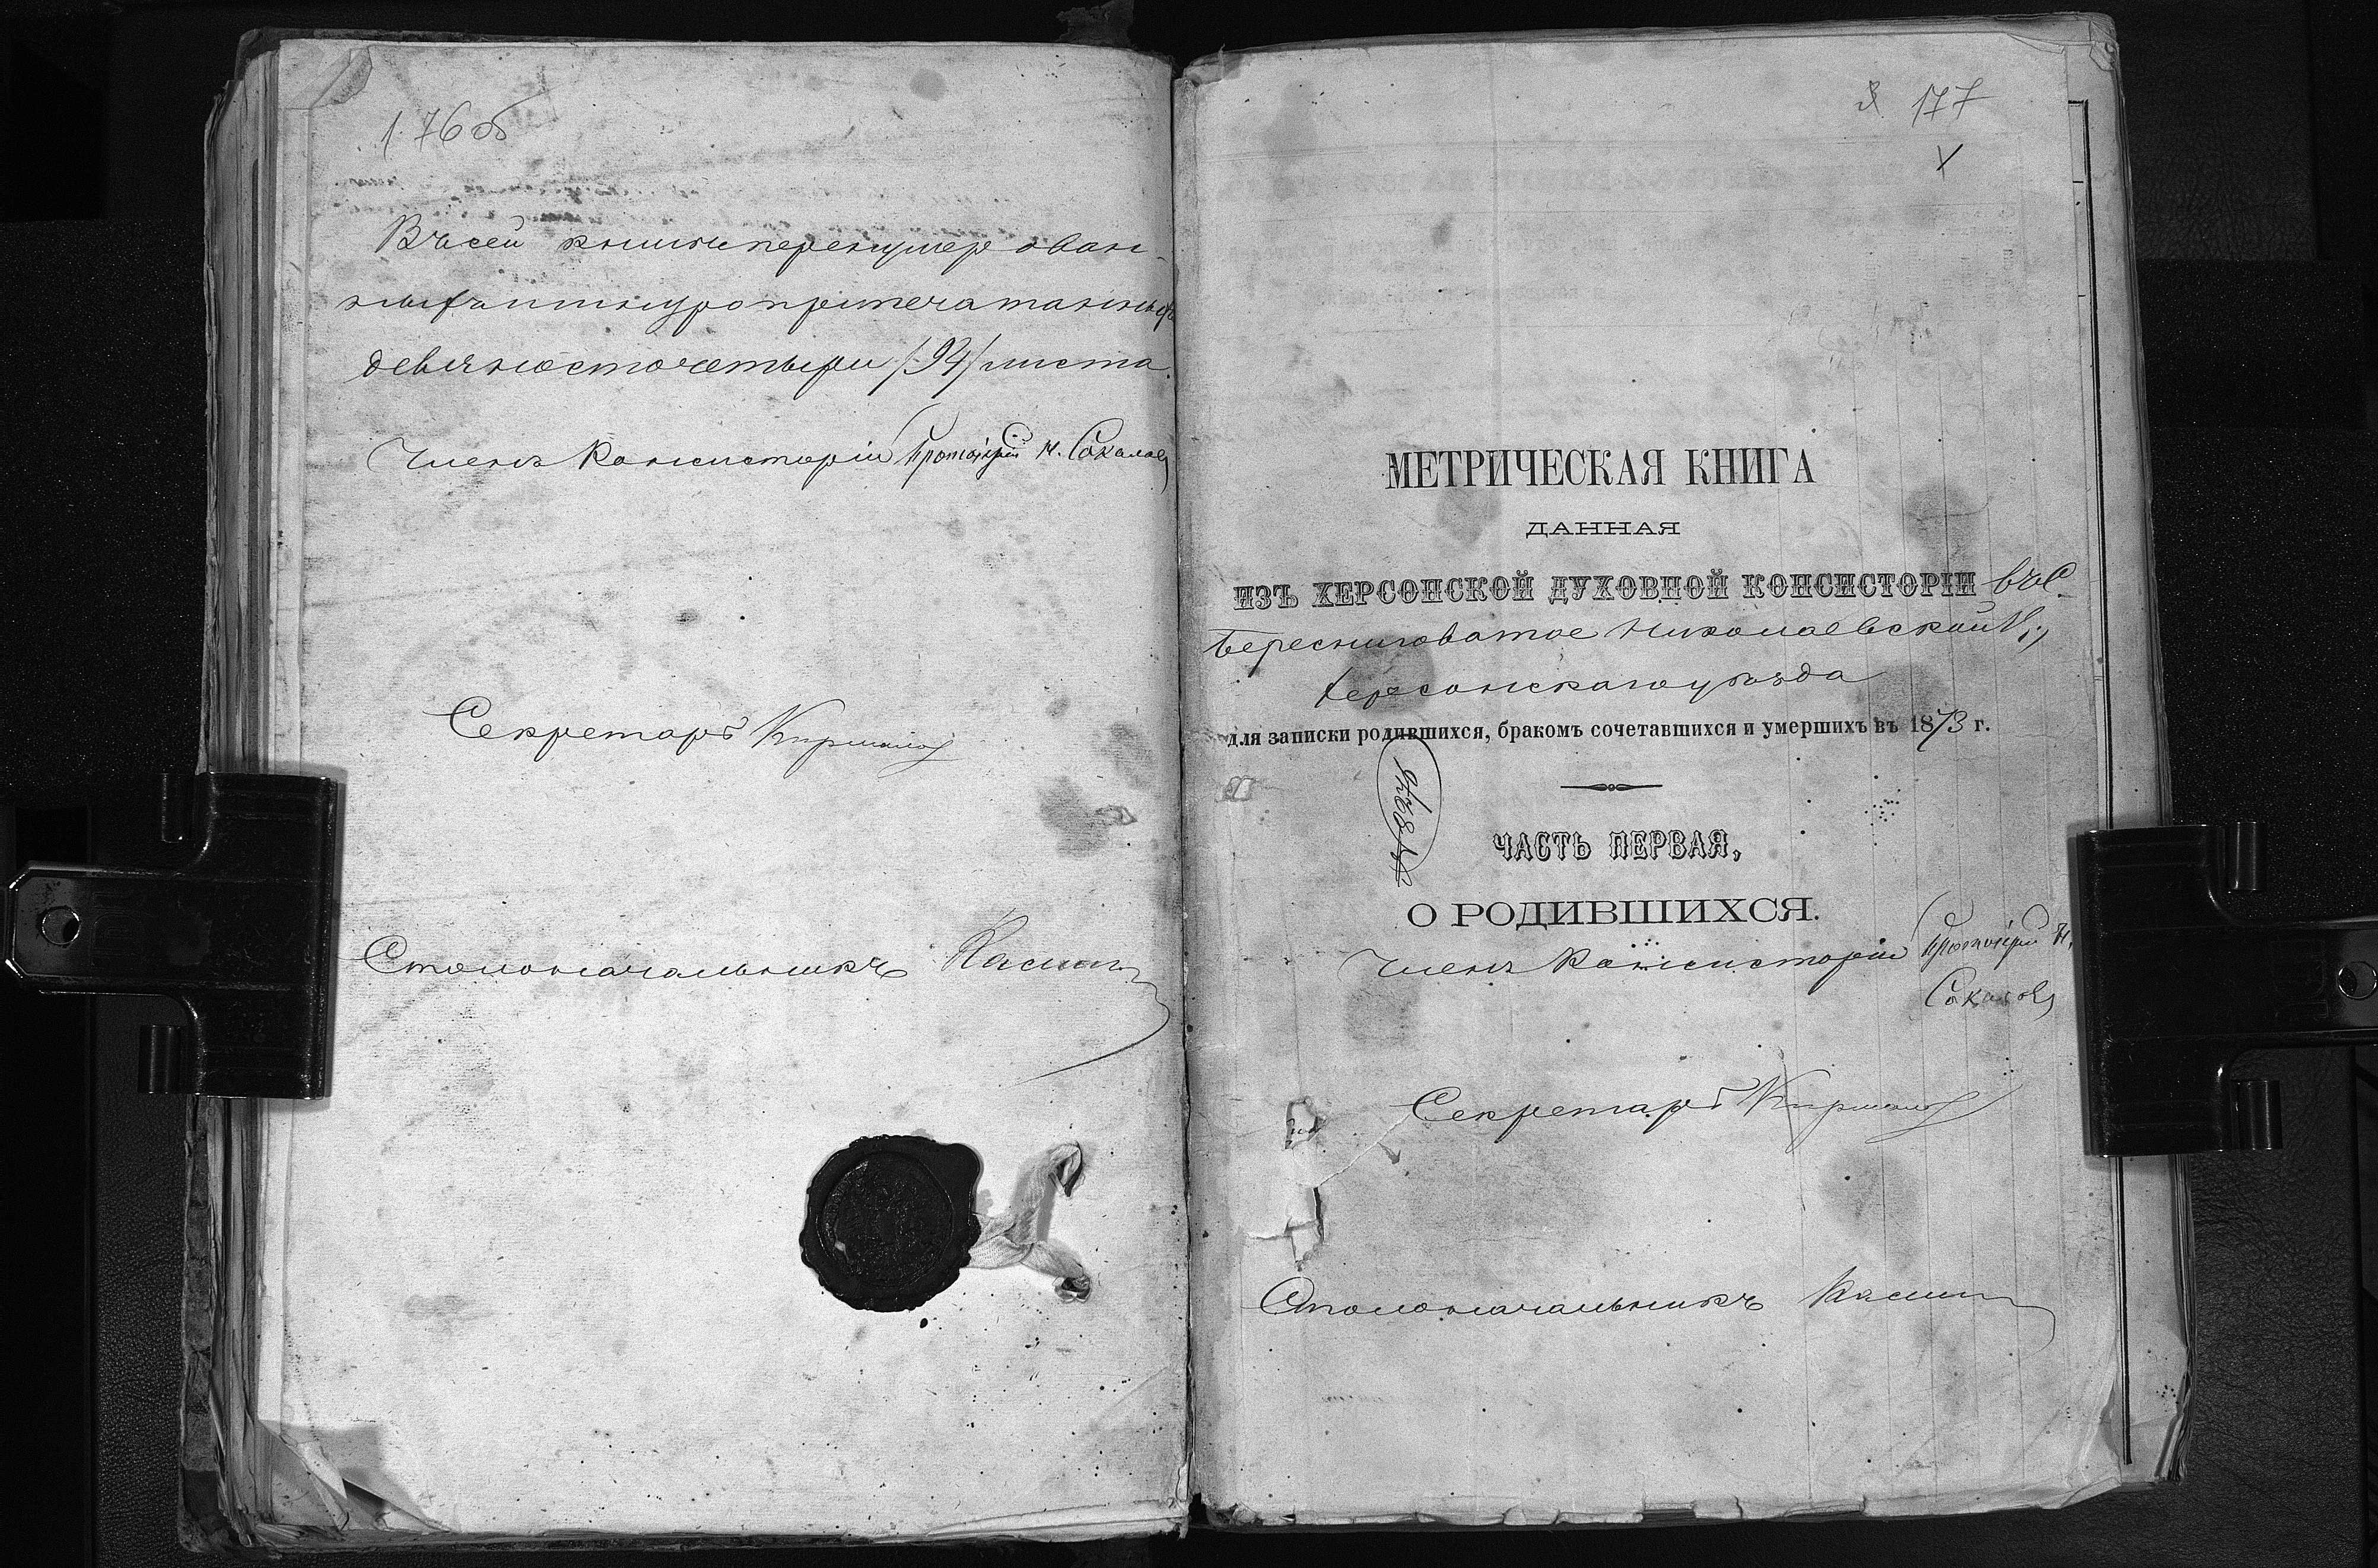 176 об
Въ сей книги перенумерован-
ныхъ и шнуроприпечатанныхъ
девяносто четыри /94/ листа.
Членъ Консисторіи Протоіерей Н. Соколовъ
Секретарь
Столоначальникъ
177
МЕТРИЧЕСКАЯ КНИГА
ДАННАЯ
ИЗЪ ХЕРСОНСКОЙ ДУХОВНОЙ КОНСИСТОРІИ въ с.
Березнеговатое Николаевской ц.,
Херсонскаго уѣзда
для записки родившихся, бракомъ сочетавшихся и умершихъ въ 1873 г.
ЧАСТЬ ПЕРВАЯ,
О РОДИВШИХСЯ.
Членъ Консисторіи Протоіерей Н.
Соколовъ
Секретарь
Столоначальникъ